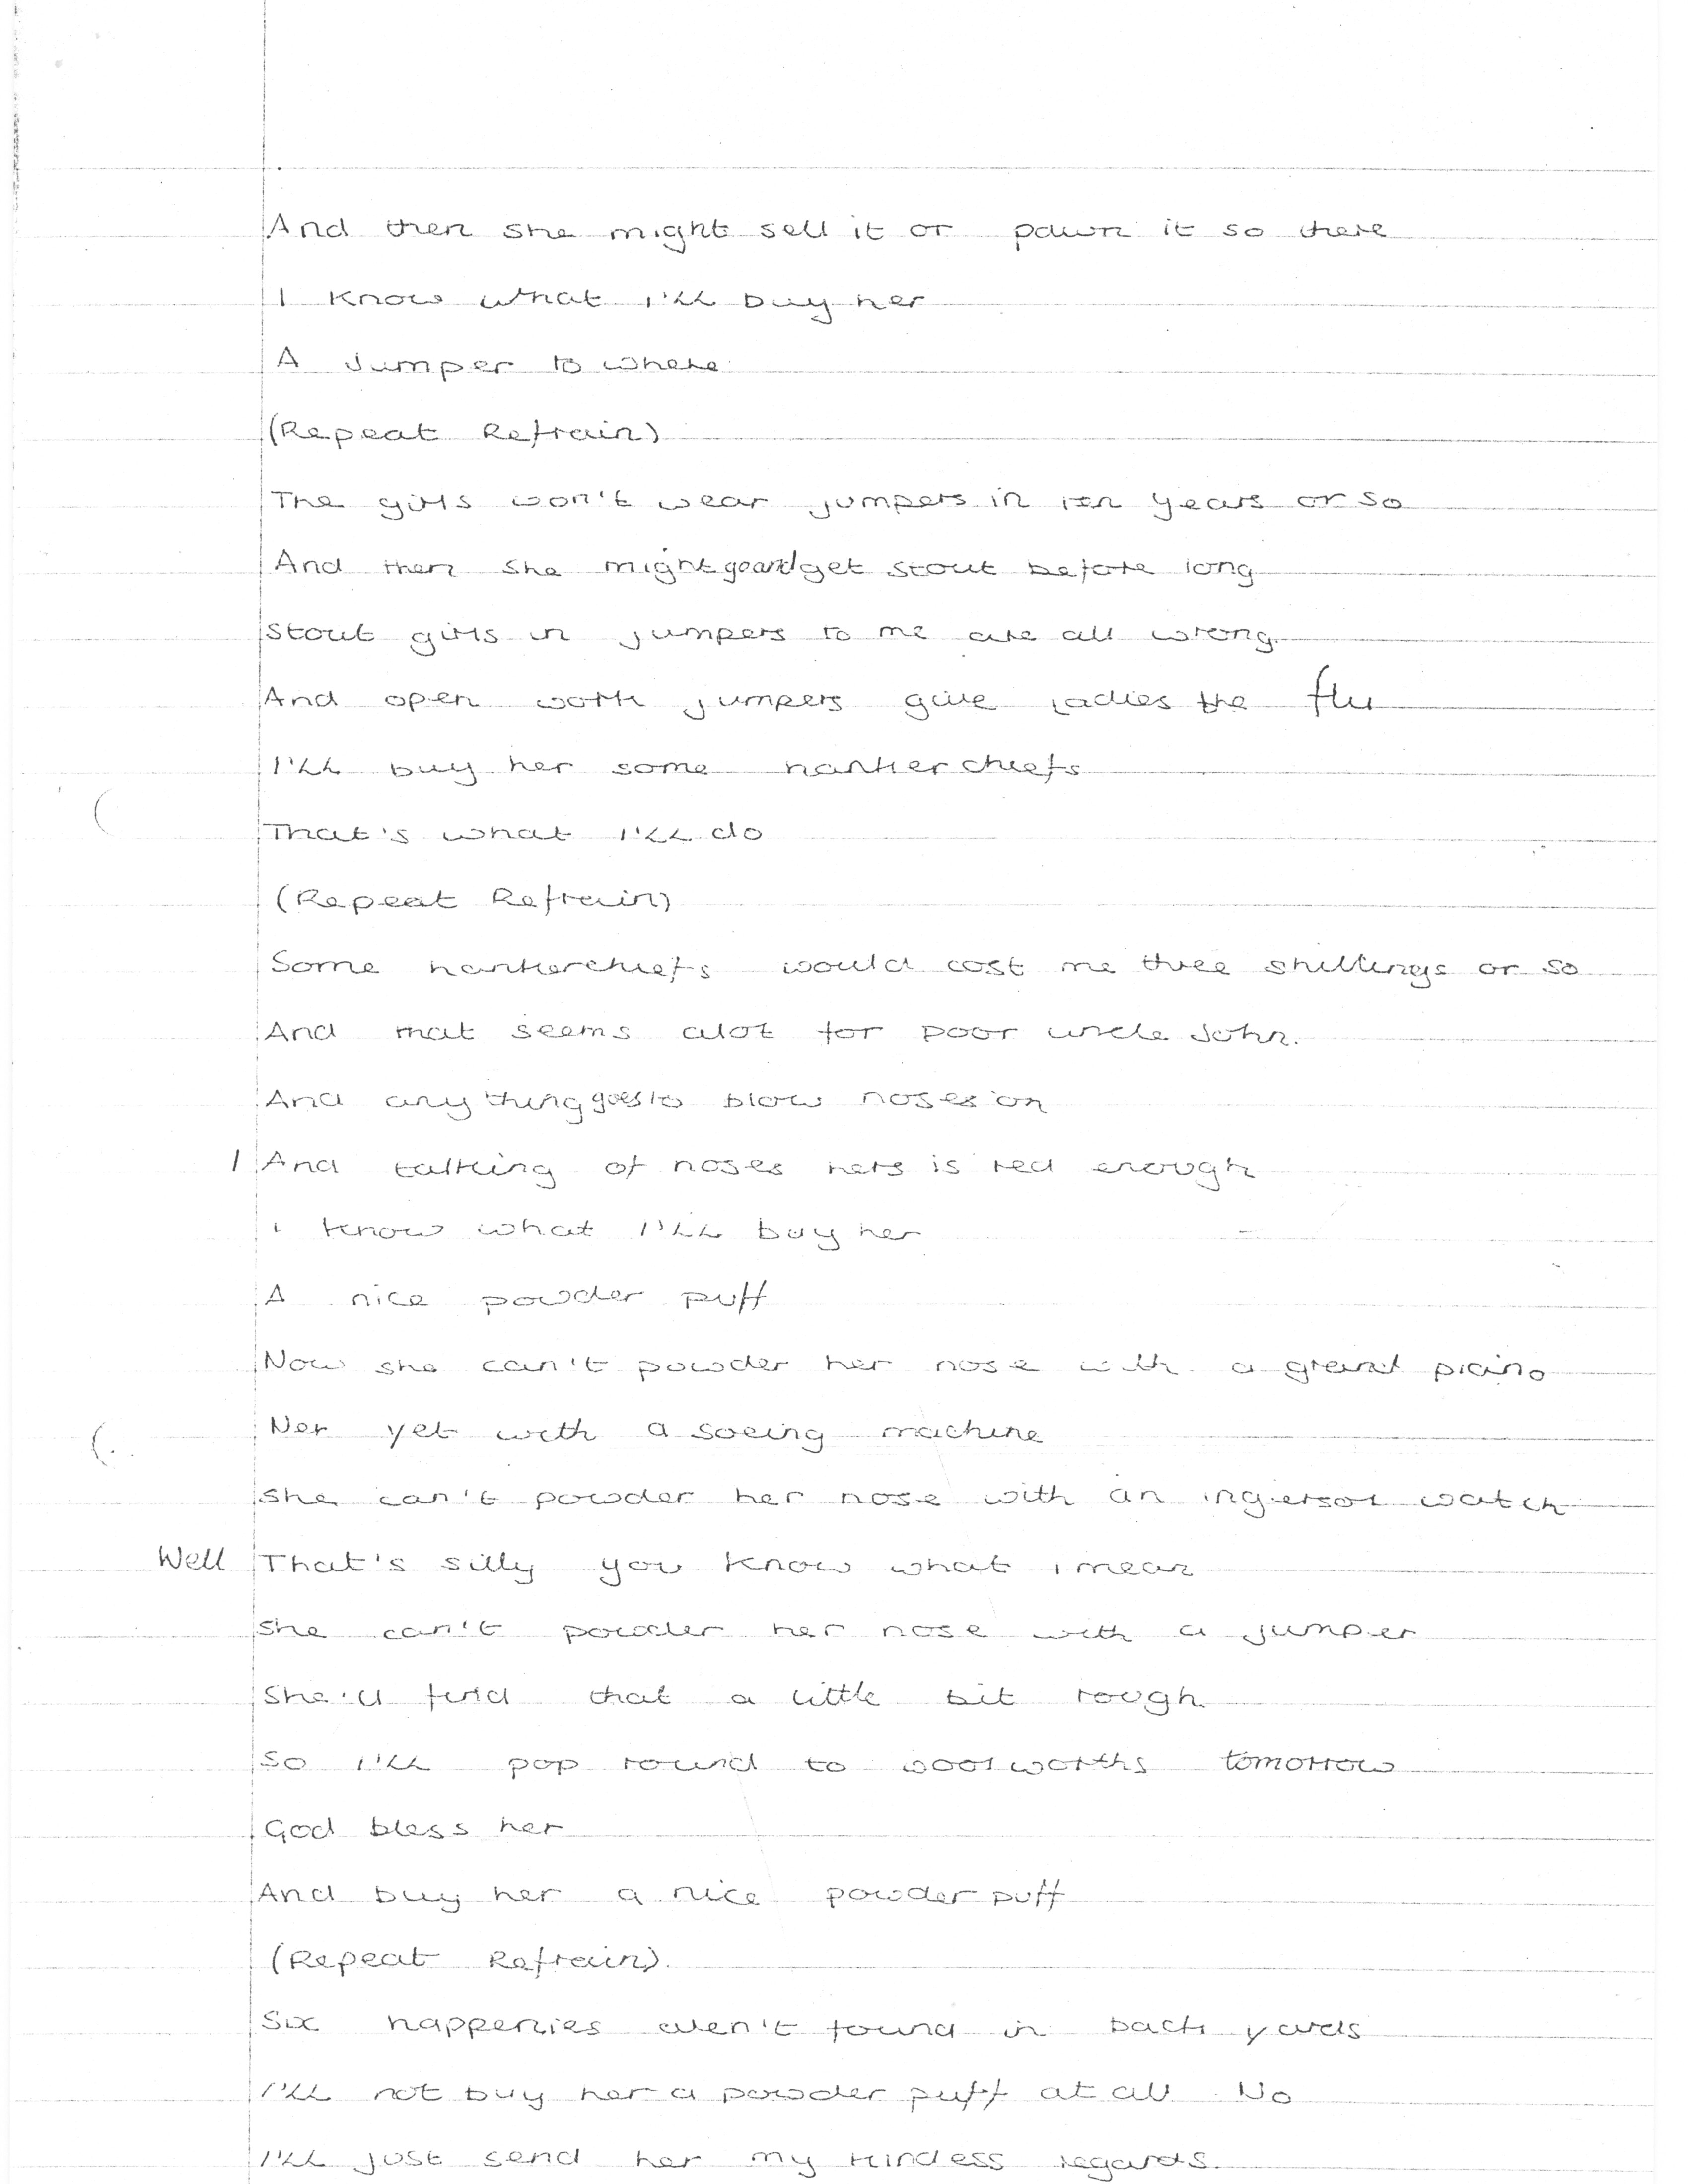 And then she might sell it or pawn it so there
I know what I'll buy her
A Jumper to where
(Repeat Refrain)
The girls won't wear jumpers in ten years or so
And then she might go and get stout before long
Stout girls in jumpers to me are all wrong
And open work jumpers give ladies the flu
I'll buy her some hankerchiefs
That's what I'll do
(Repeat Refrain)
Some hankerchiefs would cost me three shillings or so
And that seems alot for poor uncle John.
And anything goes to blow noses on
/ And talking of noses hers is red enough
i know what I'll buy her
A nice powder puff
Now she can't powder her nose with a grand piano
Ner yet with a soeing machine
She can't powder her nose with an ingersol watch
Well That's silly you know what i mean
She can't powder her nose with a jumper
She'd find that a little bit rough
So I'll pop round to woolworths tomorrow
God bless her
And buy her a nice powder puff
(Repeat Refrain).
Six happenies aren't found in back yards
I'll not buy her a powder puff at all No
I'll just send her my kindess regards.